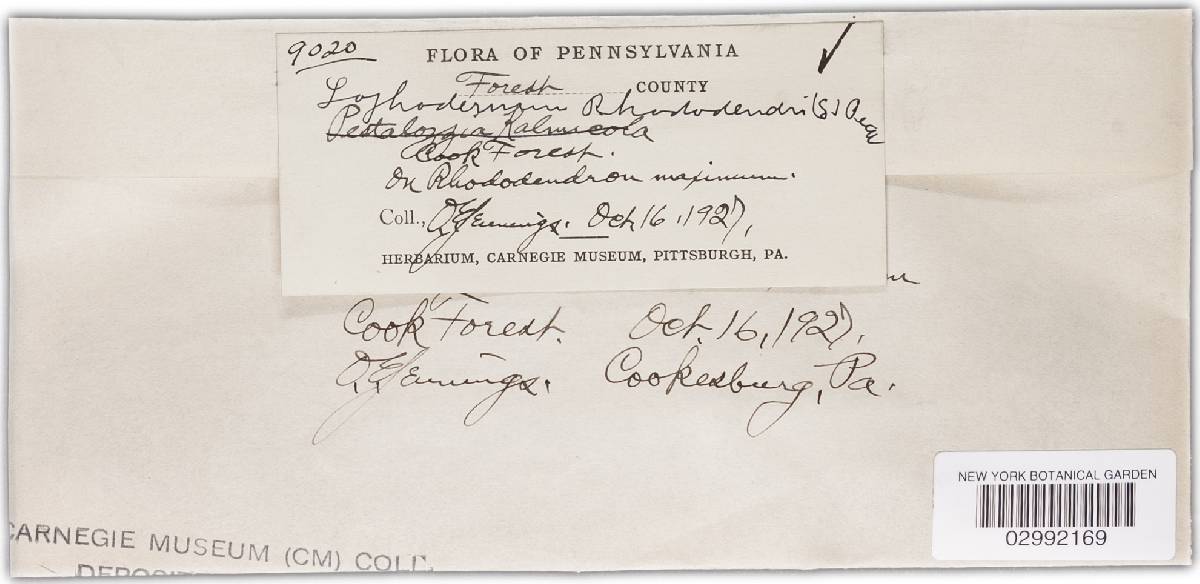 9020
FLORA OF PENNSYLVANIA
Forest COUNTY
Lophodermium Rhododendri (S)
Pestalozzia Kalmicola
Cook Forest.
On Rhododendron maximum.
Coll., O.E. Jennings. Oct 16, 1927,
HERBARIUM, CARNEGIE MUSEUM, PITTSBURGH, PA.
Cook Forest. Oct. 16, 1927,
O.E. Jennings. Cooksburg, Pa.
NEW YORK BOTANICAL GARDEN
02992169
CARNEGIE MUSEUM (CM) COLL.